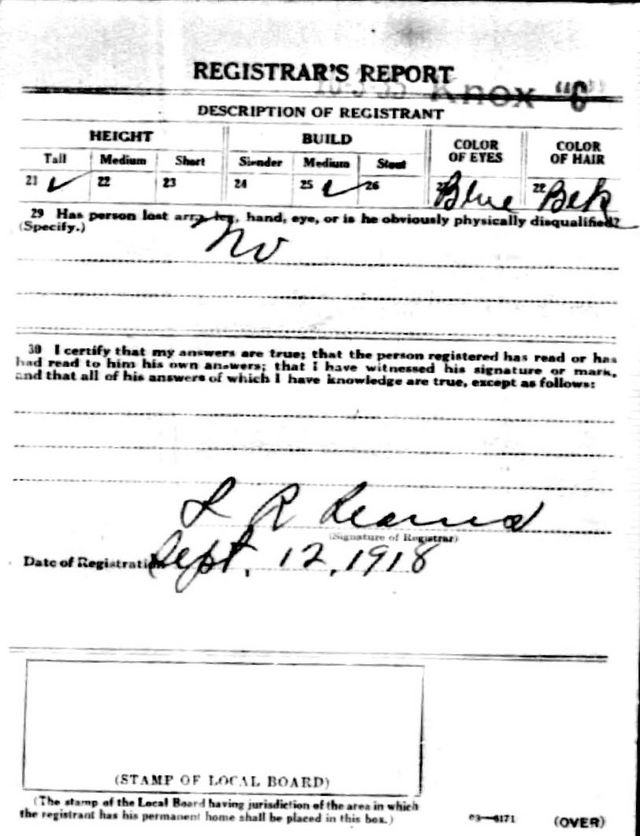 REGISTRAR'S REPORT
Knox "C"
DESCRIPTION OF REGISTRANT
HEIGHT BUILD COLOR OF EYES COLOR OF HAIR
Tall Medium Short Slender Medium Stout
21 ✓ 22 23 24 25 ✓ 26 27 Blue 28 Blk
29 Has person lost arm, leg, hand, eye, or is he obviously physically disqualified?
(Specify.) No
30 I certify that my answers are true; that the person registered has read or has
had read to him his own answers; that I have witnessed his signature or mark,
and that all of his answers of which I have knowledge are true, except as follows:
L R
(Signature of Registrar)
Date of Registration Sept. 12, 1918
(STAMP OF LOCAL BOARD)
(The stamp of the Local Board having jurisdiction of the area in which
the registrant has his permanent home shall be placed in this box.)
03—6171 (OVER)